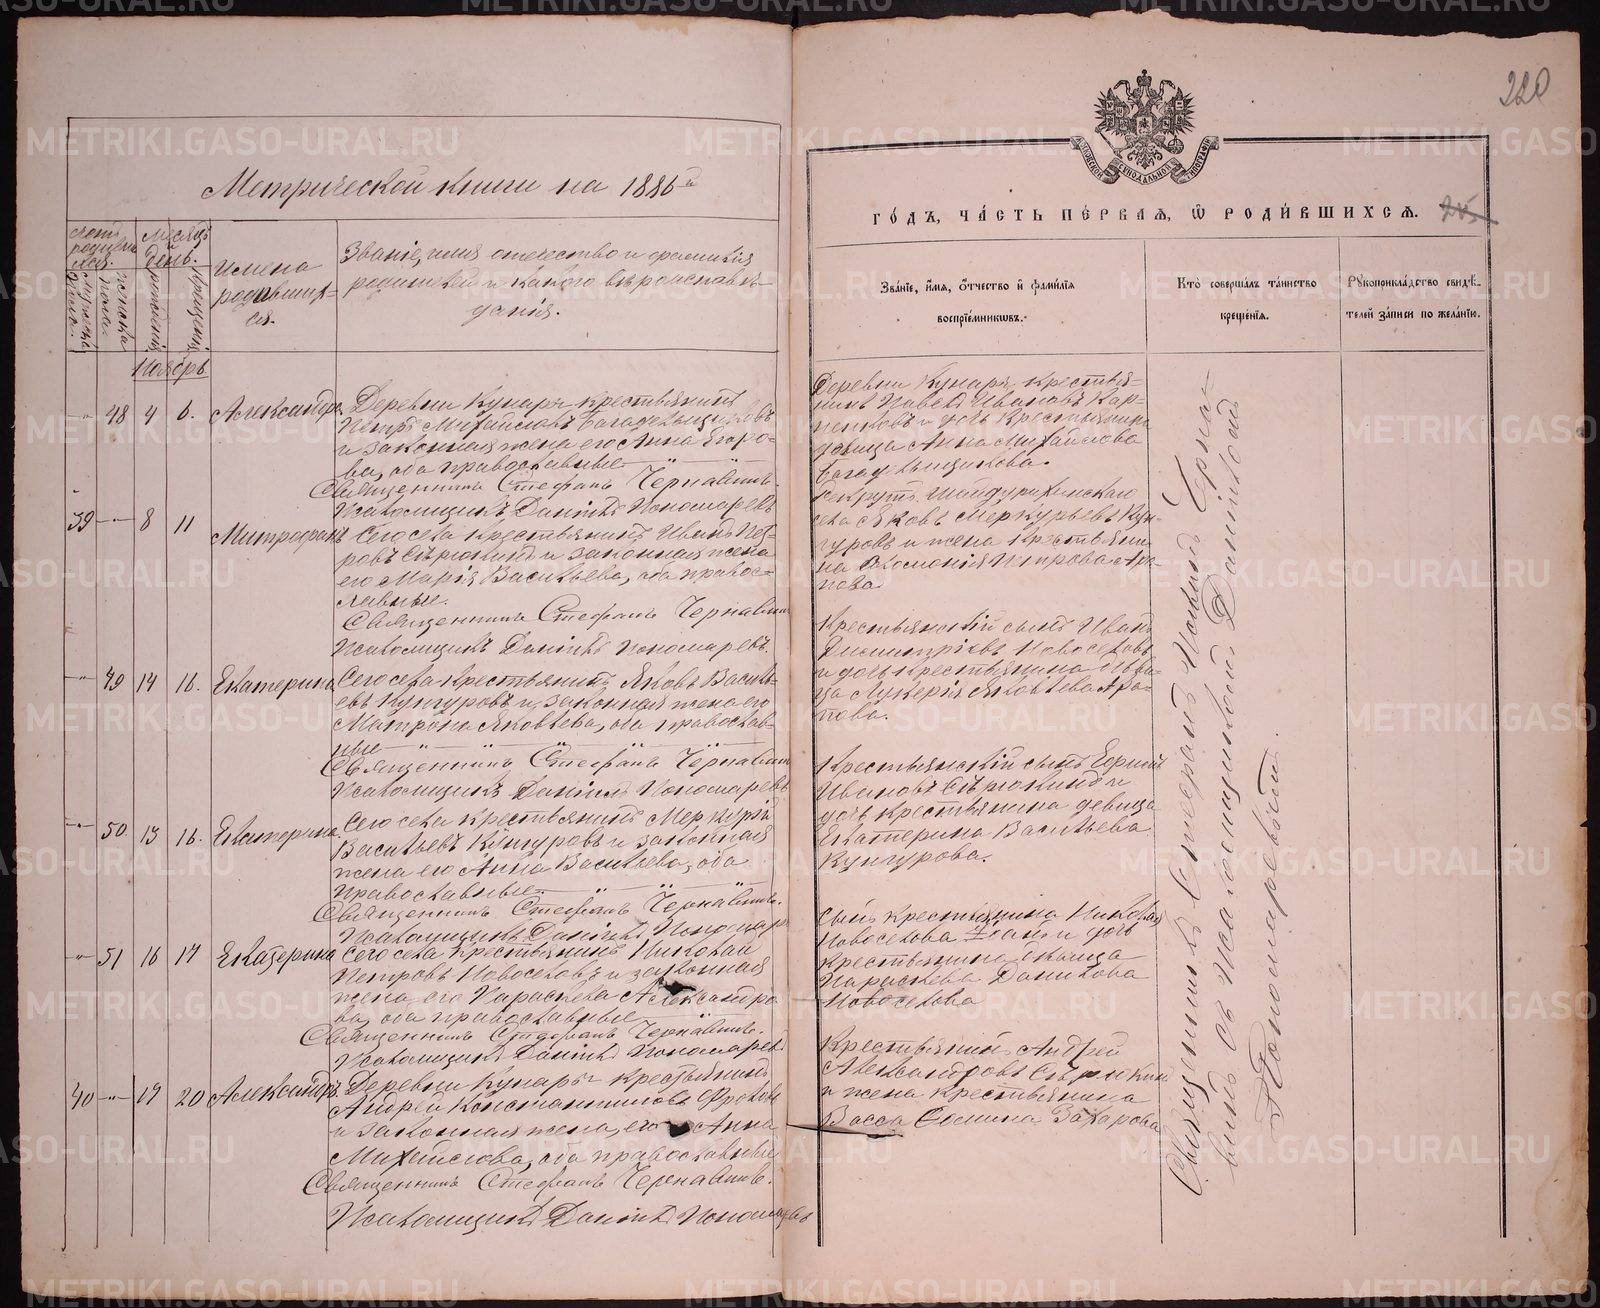 220
Метрической книги на 1886 й
Счетъ родившихся.
мужеска пола.
женска пола.
Месяцъ и день.
рожденія
крещенія
Имена родившихся.
Званіе, имя отчество и фамилія
родителей и какого вѣроисповѣ-
данія.
Ноябрь
48 4 6. Александра
Деревни Кунары крестьянинъ
Петръ Михайловъ Багадельщиковъ
и законная жена его Анна Егоро-
ва, оба православные
Священникъ Стефанъ Чернавинъ.
Псаломщикъ Даніилъ Пономаревъ
39 8 11 Митрофанъ
Сего села крестьянинъ Иванъ Пет-
ровъ Сѣрюкинъ и законная жена
его Марія Васильева, оба правос-
лавные.
Священникъ Стефанъ Чернавинъ
Псаломщикъ Даніилъ Пономаревъ.
49 14 16. Екатерина
Сего села крестьянинъ Яковъ Василь-
евъ Кунгуровъ и законная жена его
Матрона Яковлева, оба православ-
ные
Священникъ Стефанъ Чернавинъ
Псаломщикъ Даніилъ Пономаревъ
50 13 16. Екатерина
Сего села крестьянинъ Меркурій
Васильевъ Кунгуровъ и законная
жена его Анна Васильева, оба
православные.
Священникъ Стефанъ Чернавинъ.
Псаломщикъ Даніилъ Пономар
51 16 17 Екатерина
Сего села крестьянинъ Николай
Петровъ Новоселовъ и законная
жена его Параскева Александро
ва, оба православные
Священникъ Стефанъ Чернавинъ.
Псаломщикъ Даніилъ Пономаревъ
40 19 20 Александръ
Деревни Кунары крестьянинъ
Андрей Константиновъ
и законная жена, его Анна
Михайлова, оба православные
Священникъ Стефанъ Чернавинъ.
Псаломщикъ Даніилъ Пономаревъ
МОСКОВСКОЙ СѴНОДАЛЬНОЙ ТИПОГРАФІИ
ГО́ДЪ, ЧА́СТЬ ПЕ́РВАЯ, Ѡ҆ РОДИ́ВШИХСЯ.
Зва́нїе, и҆́мя, ѻ҆́тчество и҆ фами́лїя
воспрїе́мникѡвъ.
Кто̀ соверша́лъ та́инство
креще́нїя.
Рꙋкоприкла́дство свидѣ́-
телей за́писи по жела́нїю.
Деревни Кунары крестья-
нинъ Павелъ Ивановъ Кар-
пенковъ и дочь крестьянина
девица Анна Михайлова
Багадельщикова.
Рекрутъ Шайдурихинскаго
села Яковъ Меркурьевъ Кун-
гуровъ и жена крестьяни-
на Петрова Ара-
пова
Крестьянскій сынъ Иванъ
Димитріевъ Новоселовъ
и дочь крестьянина дѣви-
ца Лукерія Яковлева Ара-
пова.
Крестьянскій сынъ Ефимъ
Ивановъ Сѣрюкинъ и
дочь крестьянина девица
Екатерина Васильева
Кунгурова.
Сынъ крестьянина Николая
Новоселова Иванъ и дочь
крестьянина девица
Параскева Данилова
Новоселова
Крестьянинъ Андрей
Александровъ Сѣрюкинъ
и жена крестьянина
Васса Фомина Захарова
Священникъ Стефанъ Иоанновъ Черна-
винъ съ псаломщикомъ Данииломъ
Пономаревымъ.
METRIKI.GASO-URAL.RU